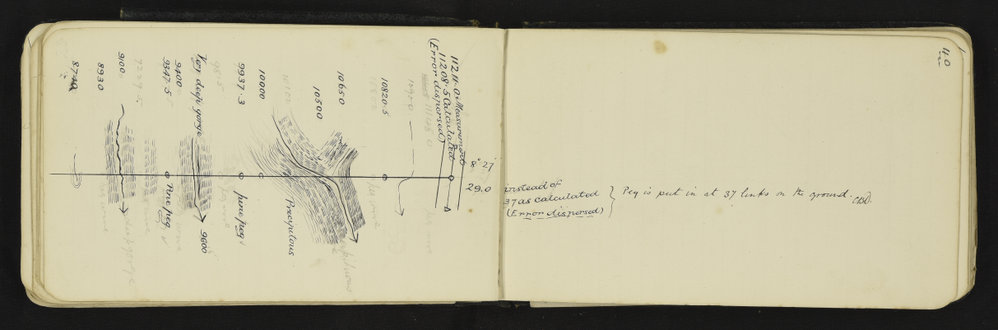 40
11211.0 Measurement
11208.5 Calculated
(Error dispersed)
10820.5
10650
10500
10000
9937.3
Very deep gorge
9400
9347.5
9100
8930
8° 27'
29.0
instead of
37 as calculated
(Error dispersed)
Peg is put in at 37 links on the ground.
Precipitous
pine peg
9600
Pine peg